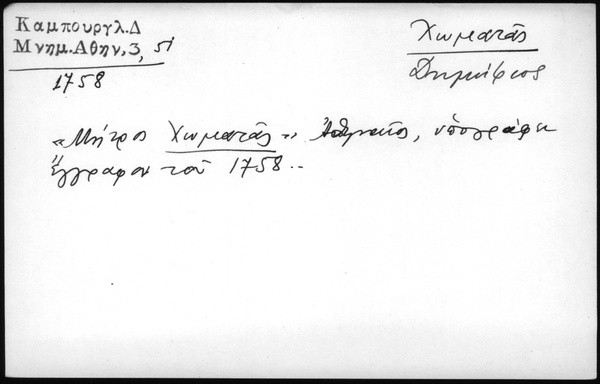 Καμπουργλ.Δ
Μνημ.Αθην.3, 51
1758
Χωματᾶς
Δημήτριος
«Μῆτρος Χωματᾶς» Ἀθηναῖος, ὑπογράφει
ἔγγραφον τοῦ 1758..